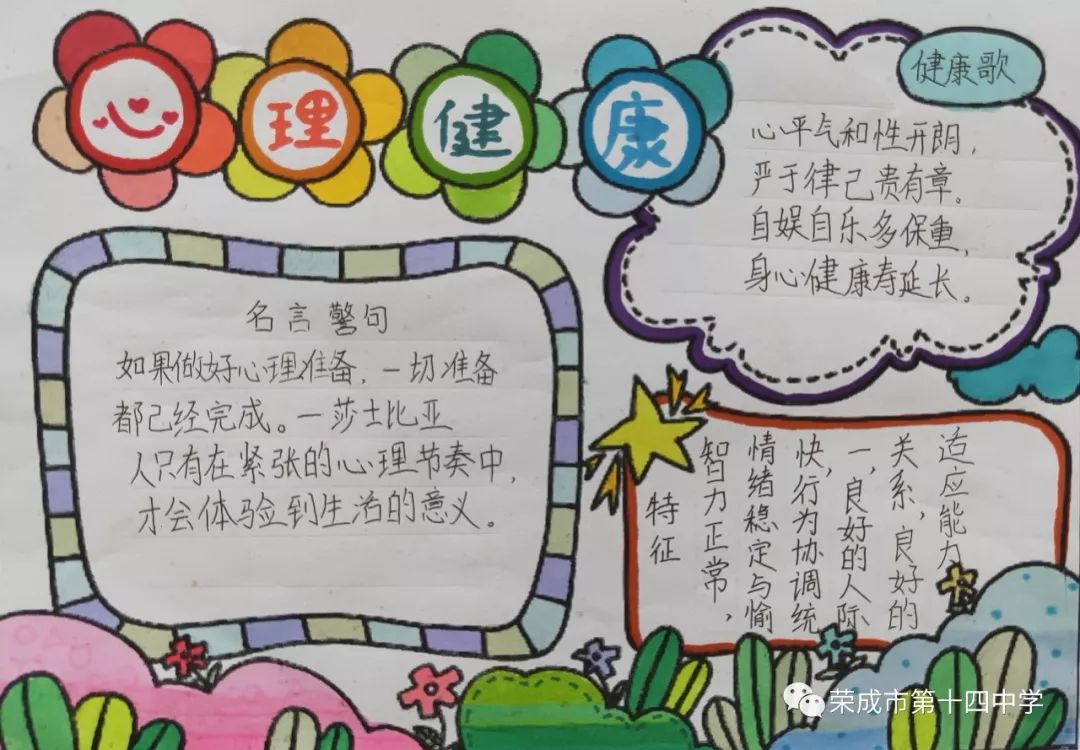 心理健康
健康歌
心平气和性开朗，
严于律己贵有章。
自娱自乐多保重，
身心健康寿延长。
名言警句
如果做好心理准备，一切准备
都已经完成。一莎士比亚
人只有在紧张的心理节奏中，
才会体验到生活的意义。
特征
智力正常，
情绪稳定与愉
快，行为协调统
一，良好的人际
关系，良好的
适应能力
荣成市第十四中学